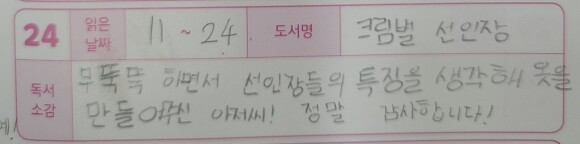 24 읽은 날짜 11 ~ 24 도서명 크림벌 선인장
독서 소감 무뚝뚝 하면서 선인장들의 특징을 생각해 옷을
만들어주신 아저씨! 정말 감사합니다!
예!